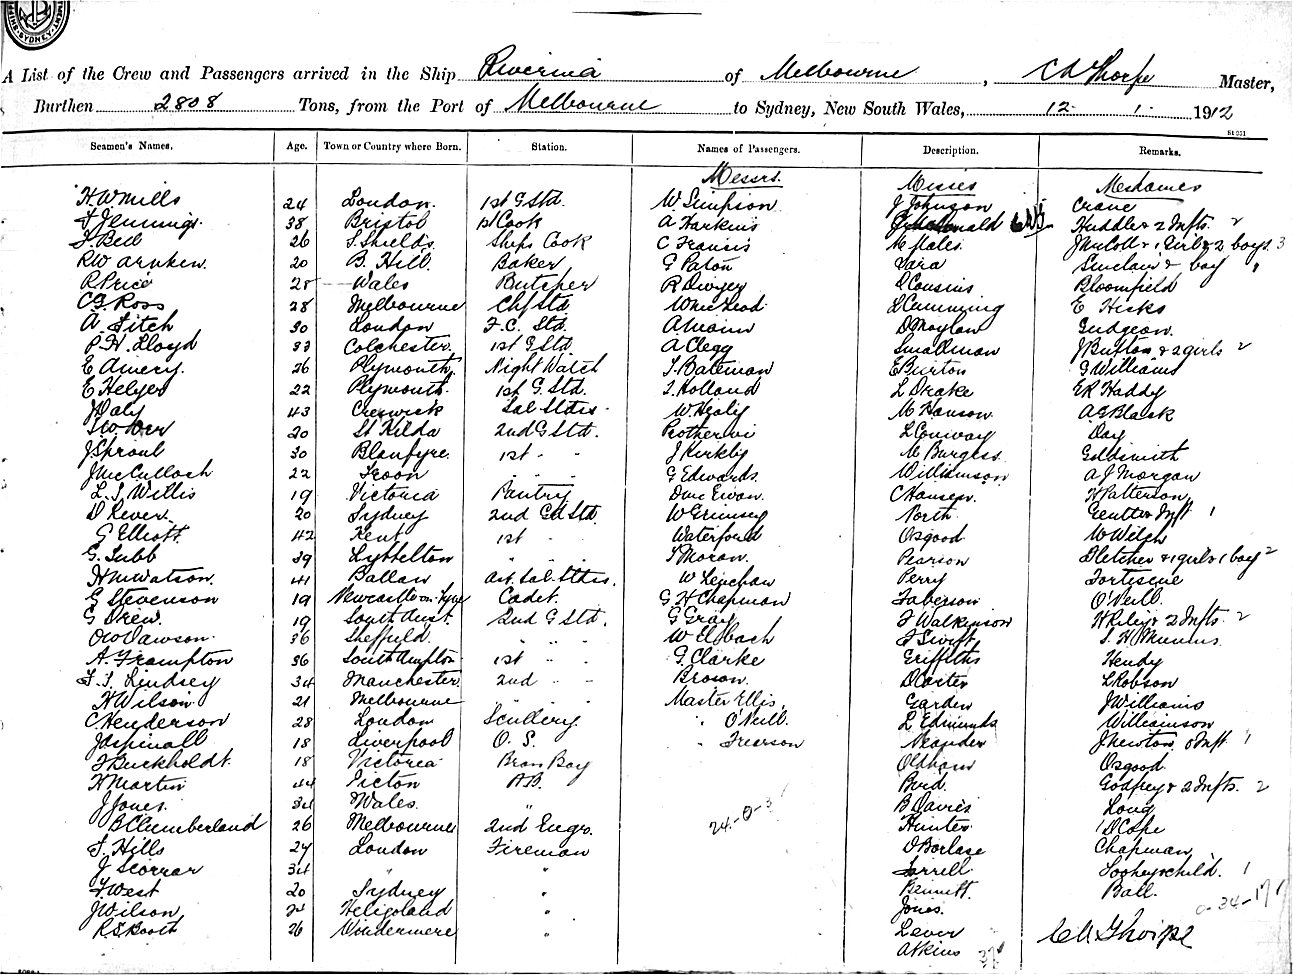 A List of the Crew and Passengers arrived in the Ship Riverina of Melbourne, C A Thorpe Master,
Burthen 2808 Tons, from the Port of Melbourne to Sydney, New South Wales, 12 1 1912
Seamen's Names. Age. Town or Country where Born. Station. Names of Passengers. Description. Remarks.
Messrs. Misses Mesdames
H W Mills 24 London. 1st G Std. W Simpson J Johnson Crane
F Jennings 38 Bristol 1st Cook A Harkins Huddle & 2 Infts. 2
F Bell 26 S. Shields Ships Cook C Francis M Hales & 1 Girl & 2 boys. 3
20 B. Hill. Baker G Paton Vara Sinclair & boy
R Price 28 Wales Butcher R Dwyer D Cousins Bloomfield
C G Ross 28 Melbourne Chf Std L Cumming E Hicks
A. Fitch 30 London F.C. Std. A Mann D Moylan Gudgeon.
P. H. Lloyd 33 Colchester. 1st G Std A Clegg Smallman J Bufton & 2 girls 2
E Amery. 26 Plymouth Night Watch T. Bateman E Burton G Williams
E Helyer 22 Plymouth. 1st G. Std. T. Holland L Drake E R Haddy
J Daly 43 Creswick Sal. Stdss. W Healy M Hanson A E Black
20 St Kilda 2nd G Std. L Conway Day
J Sproul 30 1st " " J Kirkby M Burgess Goldsmith
J McCulloch 22 Troon " " " G Edwards. Williamson A J Morgan
L. S. Willis 19 Victoria Pantry C Hansen. H Patterson
D Rever. 20 Sydney 2nd Gd Std. W Grimsey North. & Inft 1
G Elliott 42 Kent 1st " Waterford Osgood W Welch
G. Tubb 39 Lyttelton " " " T Moran. Pearson Fletcher & 1 girl & 1 boy 2
H M Watson. 41 Ballan Ast. Sal. Stdss. W Lenehan Perry Fortesque
G Stevenson 19 Newcastle on Tyne Cadet. G H Chapman Faberson O'Neill
G Drew. 19 South Aust. 2nd G Std. G Gray F Walkinson H Riley & 2 Infts. 2
O W Dawson. 36 Sheffield. " " " W Elbach F Swift
A. Frampton 36 Southampton 1st " " G. Clarke Griffiths Hendy
F. S. Lindsey 34 Manchester. 2nd " " Brown. D Carter L Robson
H Wilson. 21 Melbourne " " " Master Ellis. Garden J Williams
C Henderson 28 London Scullery. " O'Neill. L Edmunds Williamson
J Aspinall 18 Liverpool O. S. " Frearson Neander J Newton & Inft 1
F Buckholdt. 18 Victoria Oldham Osgood
H Martin 44 Picton A.B. Bird. Godfrey & 2 Infts. 2
J Jones. 34 Wales. " B Davies Long
B Cumberland 26 Melbourne 2nd Engr. 24-0-3 Hunter D Cope
F. Hills 27 London Fireman O Borlase Chapman
J Scorrar 34 " " Farrell & child. 1
F West 20 Sydney " Bennett. Ball. 0-34-17
J Wilson 24 Heligoland " Jones.
R. S. Booth 26 Windermere " Lever C A Thorpe
Atkins 37